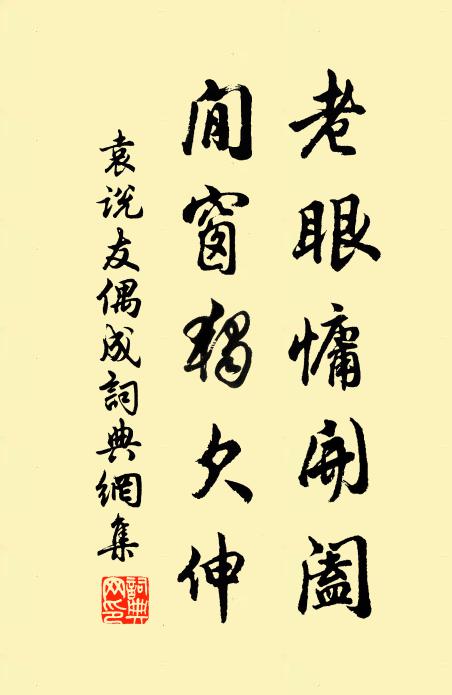 老眼慵開闔
閒窗獨欠伸
袁說友偶成詞典網集
詞典網印